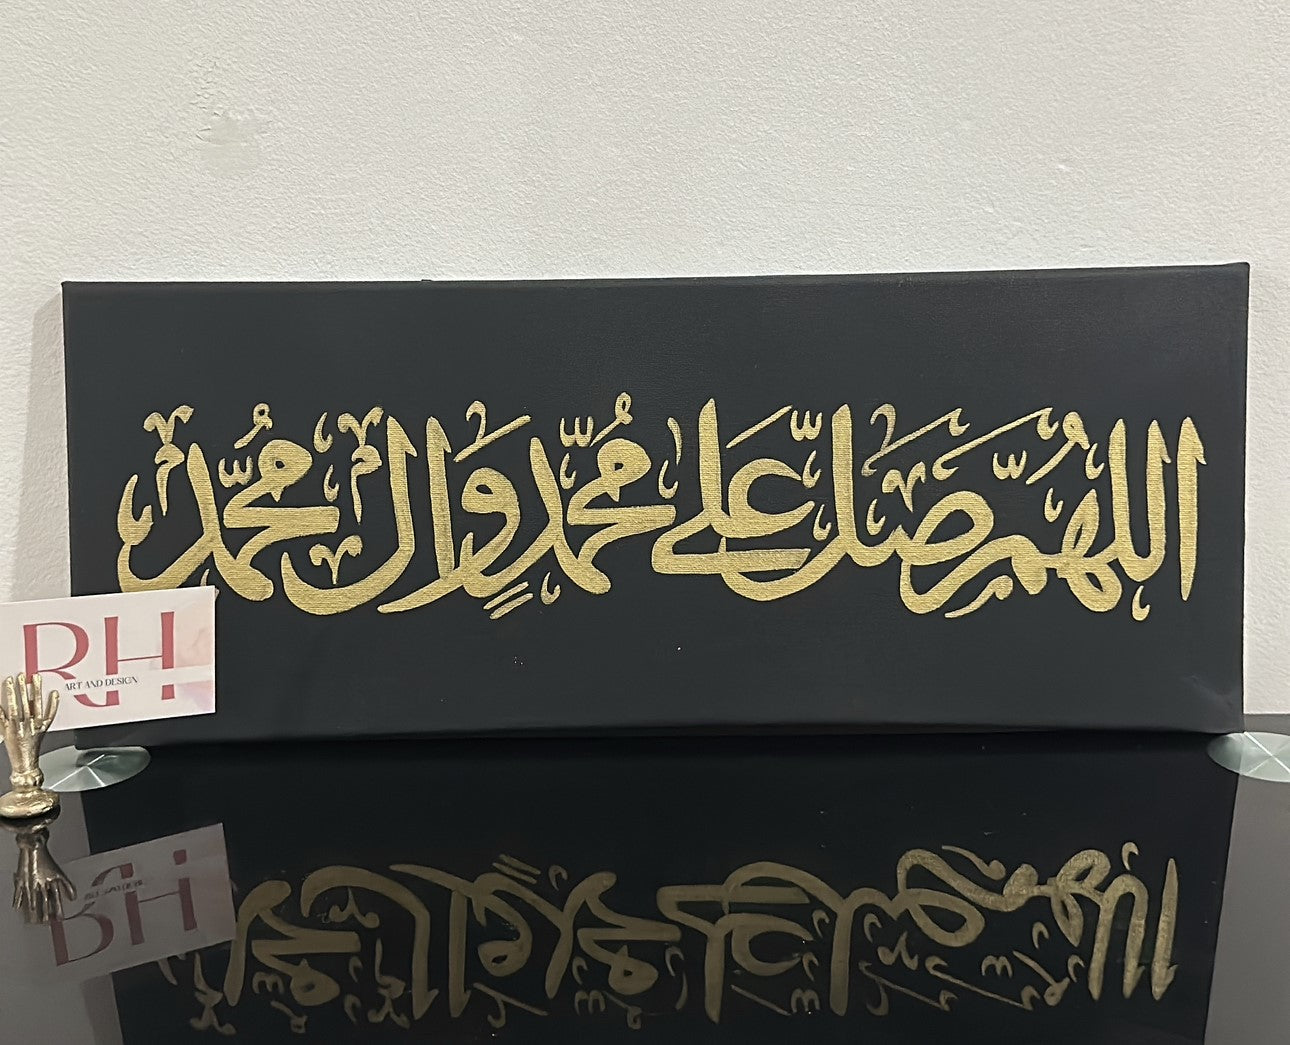 اللهم صَلِّ عَلى مُحَمَّدٍ وَال مُحَمَّد
RH
ART AND DESIGN